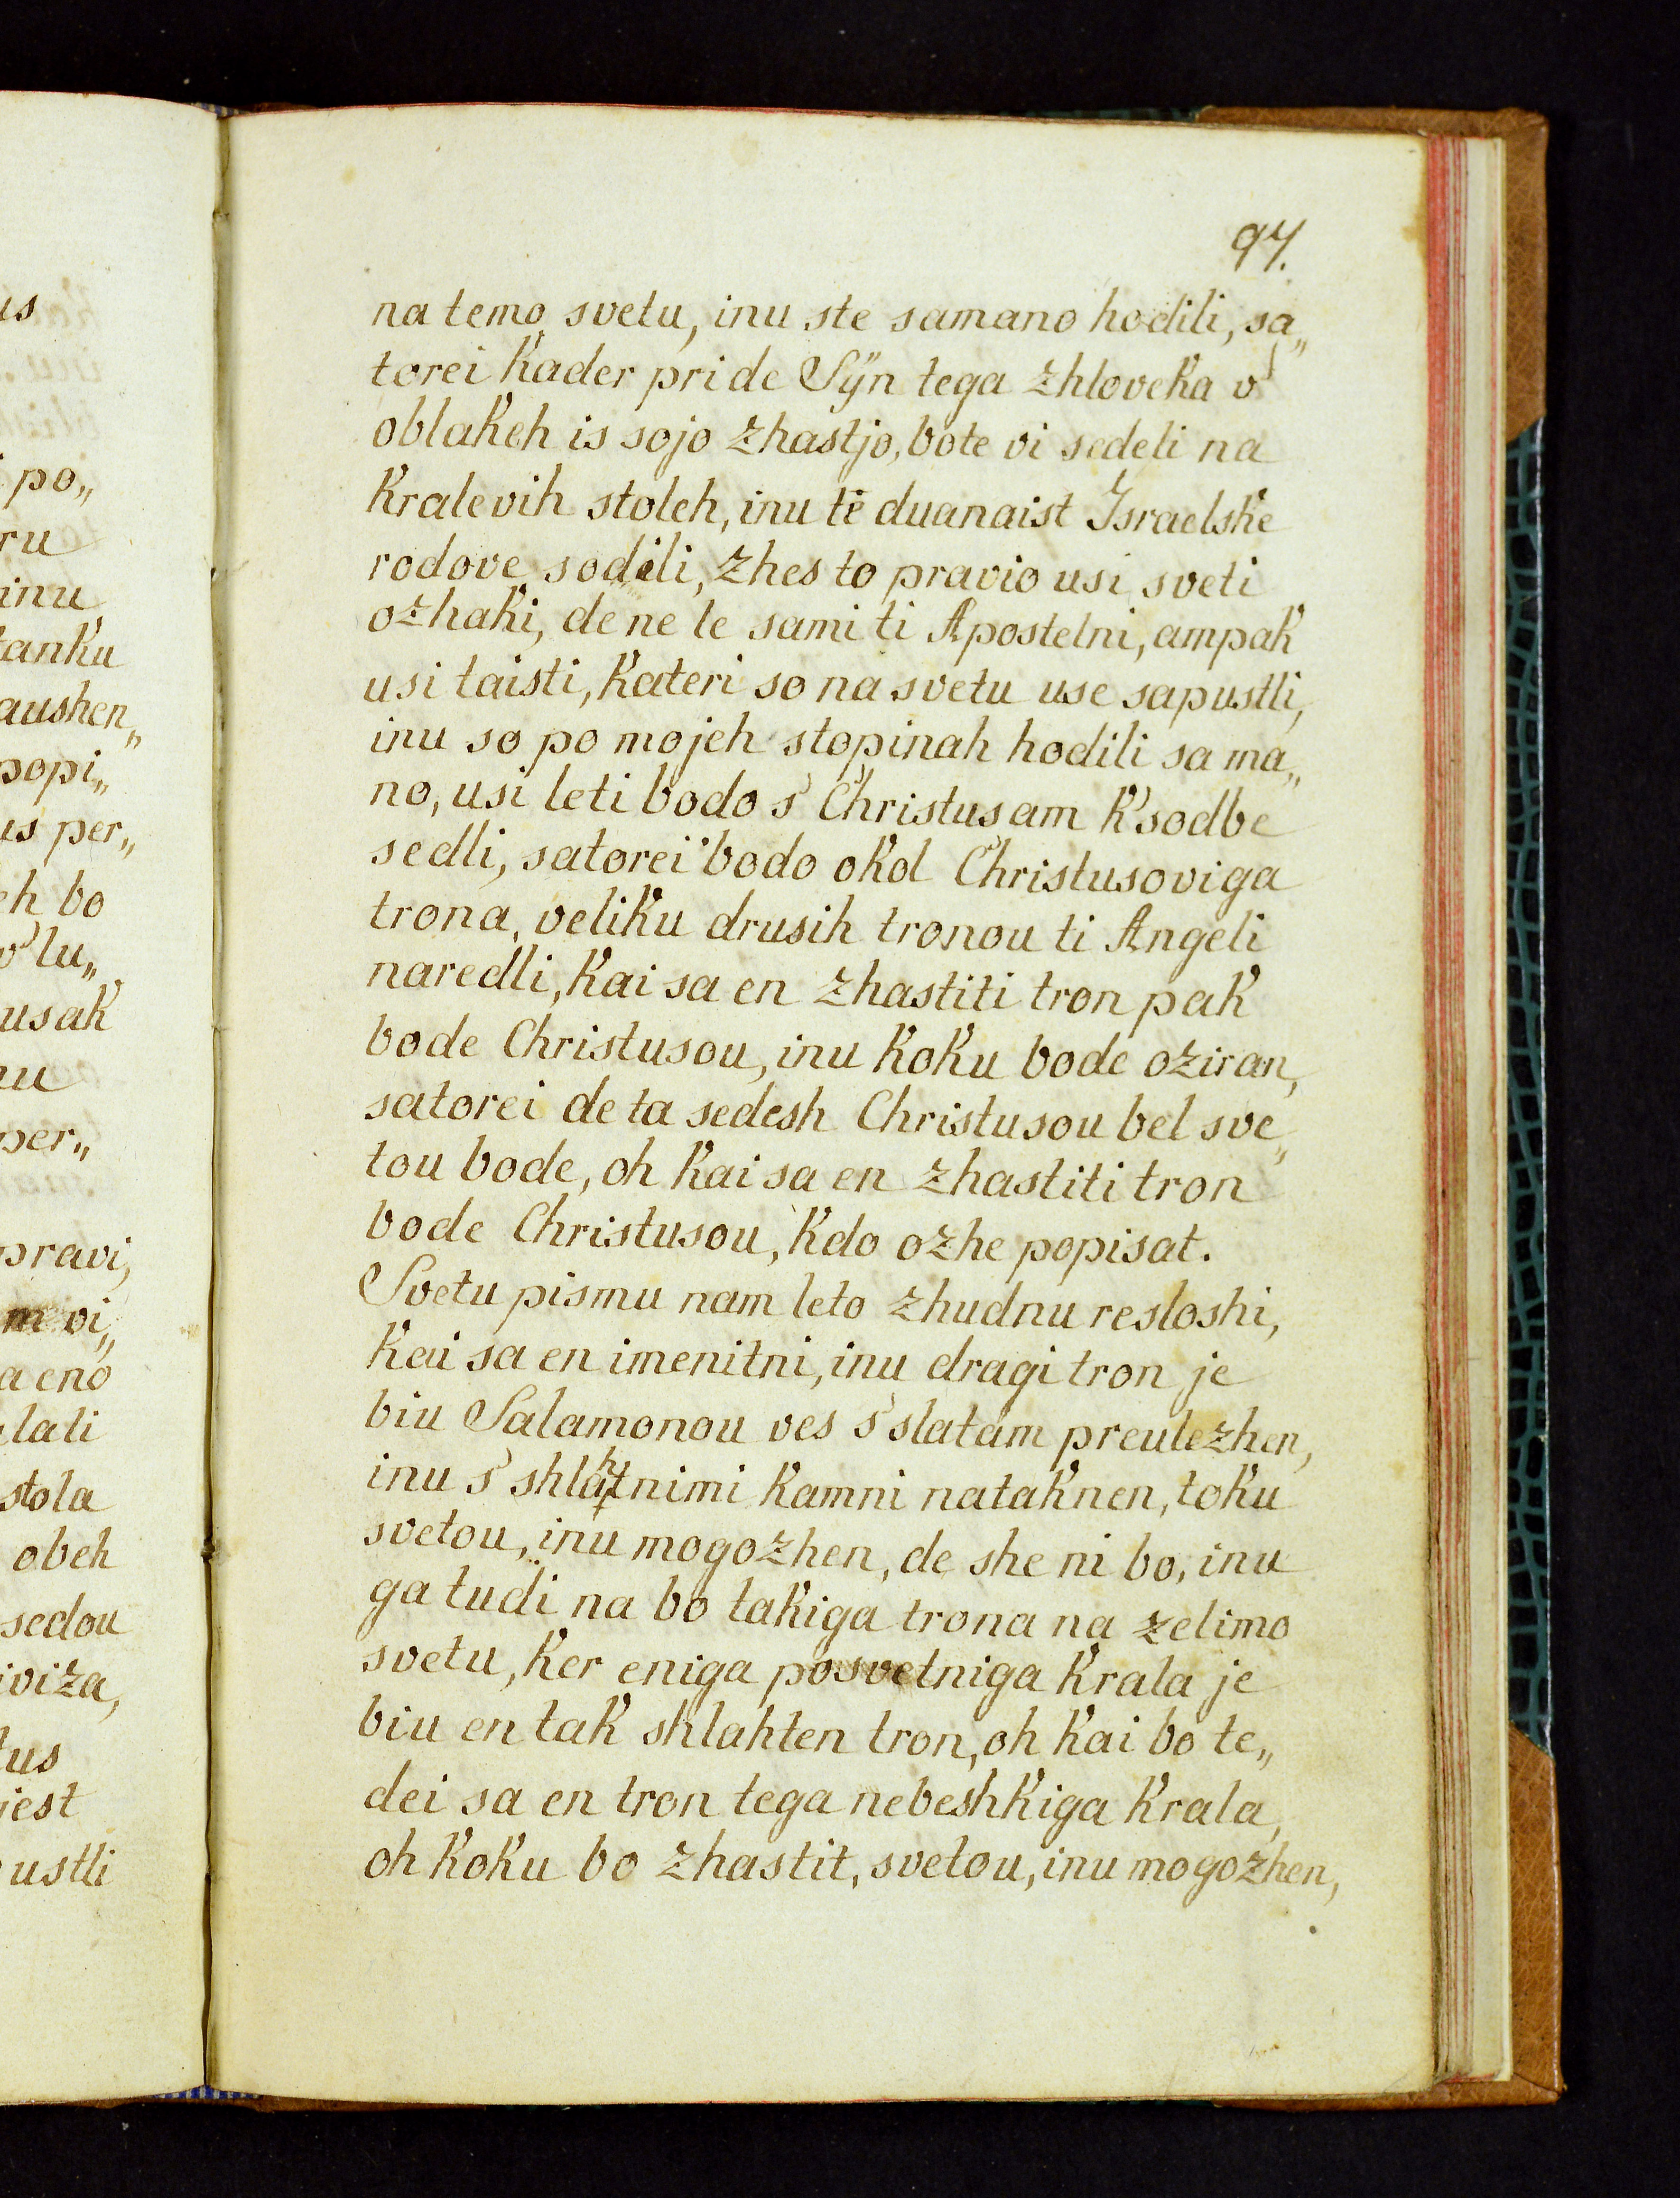 97.
us
po„
ru
inu
tanku
aushen„
popi„
us per„
eh bo
v' lu„
usak
nu
per„
pravi,
m vi„
a eno
lali
stola
obeh
sedou
viza,
tus
iest
ustli
na temo svetu, inu ste samano hodili, sa„
torei kader pride Sÿn tega zhloveka v'
oblakeh is sojo zhastjo, bote vi sedeli na
kralevih stoleh, inu të duanaist Israelske
rodove sodili, zhes to pravio usi sveti
ozhaki, de ne le sami ti Apostelni, ampak
usi taisti, kateri so na svetu use sapustli,
inu so po mojeh stopinah hodili sa ma„
no, usi leti bodo s' Christusam k' sodbe
sedli, satorei bodo okol Christusoviga
trona, veliku drusih tronou ti Angeli
naredli, kai sa en zhastiti tron pak
bode Christusou, inu koku bode oziran,
satorei de ta sedesh Christusou bel sve„
tou bode, oh kai sa en zhastiti tron
bode Christusou, kdo ozhe popisat.
Svetu pismu nam leto zhudnu resloshi,
kai sa en imenitni, inu dragi tron je
biu Salamonou ves s' slatam preulezhen,
inu s' shlahtnimi kamni nataknen, toku
svetou, inu mogozhen, de she ni bo, inu
ga tudi na bo takiga trona na zelimo
svetu, ker eniga posvetniga krala je
biu en tak shlahten tron, oh kai bo te„
dei sa en tron tega nebeshkiga krala,
oh koku bo zhastit, svetou, inu mogozhen,